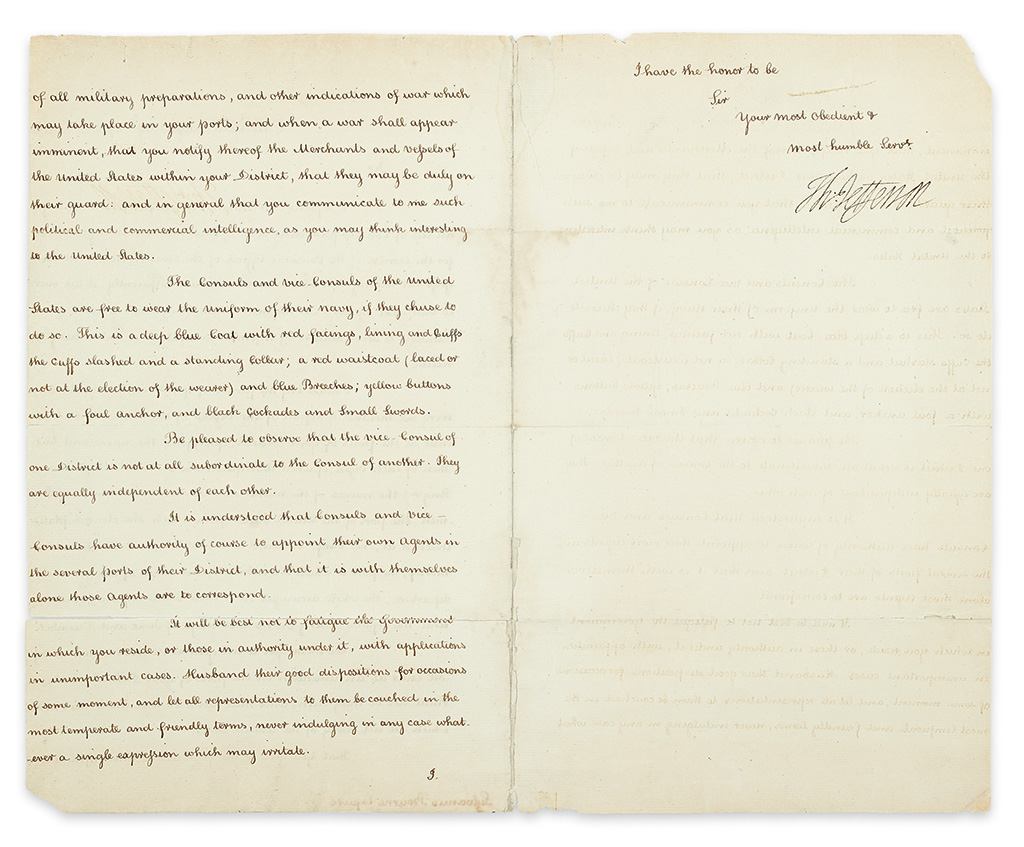 of all military preparations, and other indications of war which
may take place in your ports; and when a war shall appear
imminent, that you notify thereof the Merchants and vessels of
the United States within your District, that they may be duly on
their guard: and in general that you communicate to me such
political and commercial intelligence, as you may think interesting
to the United States.
The Consuls and vice-Consuls of the United
States are free to wear the uniform of their navy, if they chuse to
do so. This is a deep blue Coat with red facings, lining and Cuffs
the Cuffs slashed and a standing Collar; a red waistcoat (laced or
not at the election of the wearer) and blue Breeches; yellow buttons
with a foul anchor, and black Cockades and small swords.
Be pleased to observe that the vice-Consul of
one District is not at all subordinate to the Consul of another. They
are equally independent of each other.
It is understood that Consuls and vice-
Consuls have authority of course to appoint their own Agents in
the several ports of their District, and that it is with themselves
alone those Agents are to correspond.
It will be best not to fatigue the Government
in which you reside, or those in authority under it, with applications
in unimportant cases. Husband their good dispositions for occasions
of some moment, and let all representations to them be couched in the
most temperate and friendly terms, never indulging in any case what-
-ever a single expression which may irritate.
I.
I have the honor to be
Sir
Your most obedient &
most humble Servt.
Th: Jefferson